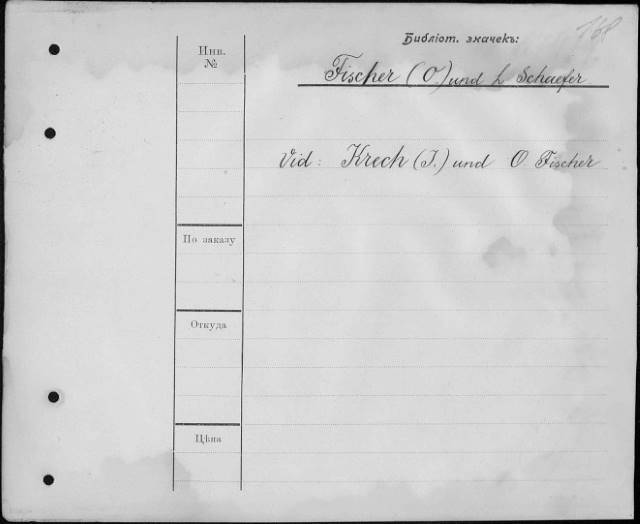 Библіот. значекъ:
Инв.
№
Fischer (O.) und L Schaefer
Vid: Krech (J.) und O. Fischer
По заказу
Откуда
Цѣна